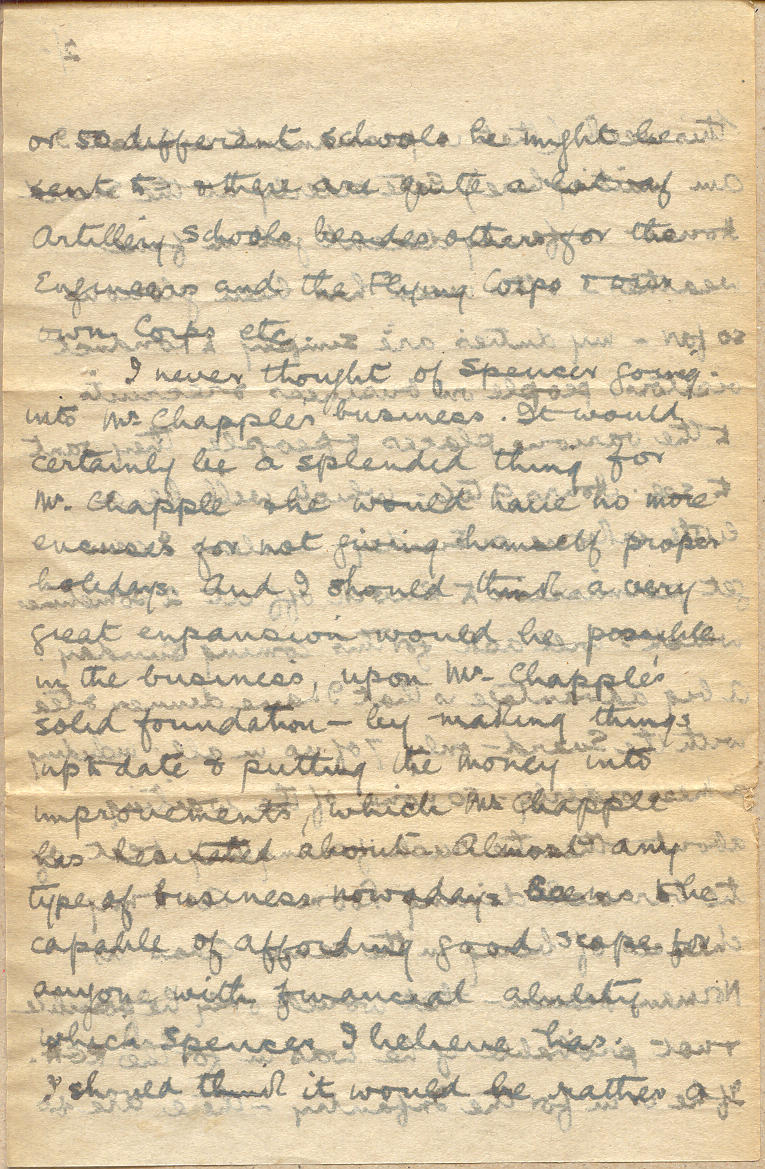 or so different schools he might be
sent to & there are quite a lot of
Artillery schools besides others for the
Engineers and the Flying Corps & our
own Corps etc.
I never thought of Spencer going
into Mr Chapples business. It would
certainly be a splendid thing for
Mr. Chapple & he would have no more
excuses for not giving himself proper
holidays. And I should think a very
great expansion would be possible
in the business, upon Mr. Chapple's
solid foundation – by making things
up to date & putting the money into
improvements, which Mr Chapple
has hesitated about. Almost any
type of business nowadays seems to be
capable of affording good scope for
anyone with financial ability
which Spencer I believe has.
I should think it would be rather a